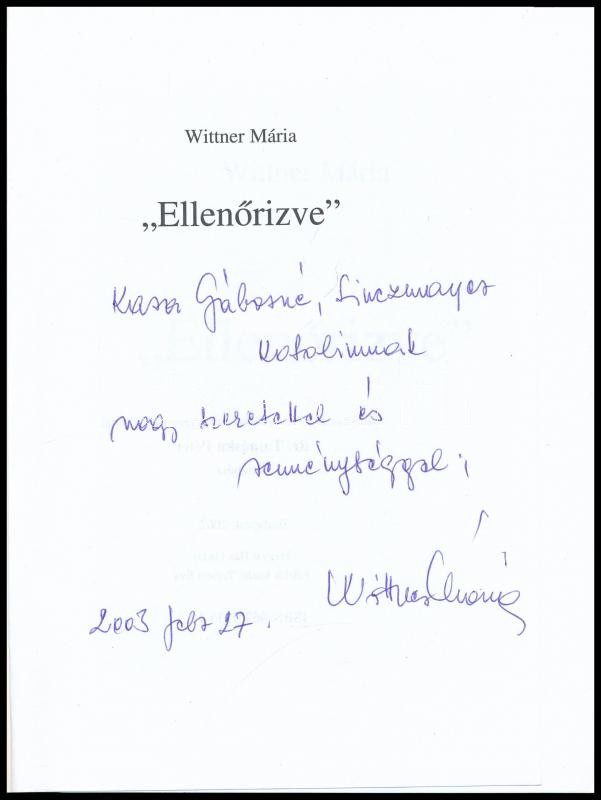 Wittner Mária
„Ellenőrizve”
Kasza Gáborné, Linczmayer
Katalinnak
nagy szeretettel és
reménységgel;
Wittner Mária
2003 febr 27.